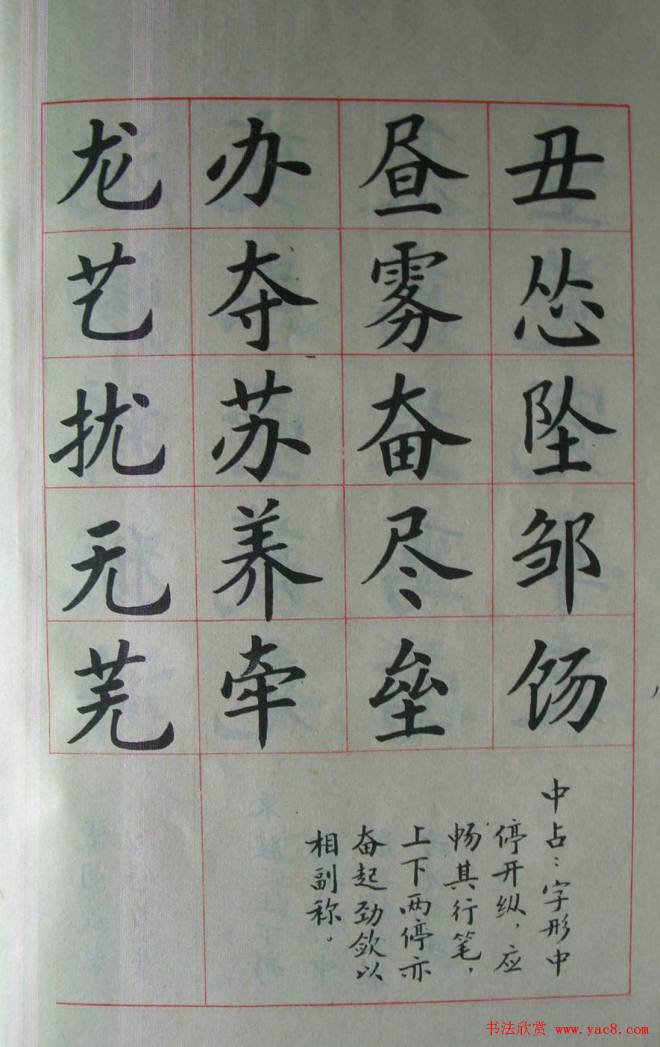 丑怂坠邹饧
昼雾奋尽垒
办夺苏养牵
龙艺扰无芜
中占：字形中
停开纵，应
畅其行笔，
上下两停亦
奋起劲敛以
相副称。
书法欣赏 www.yac8.com